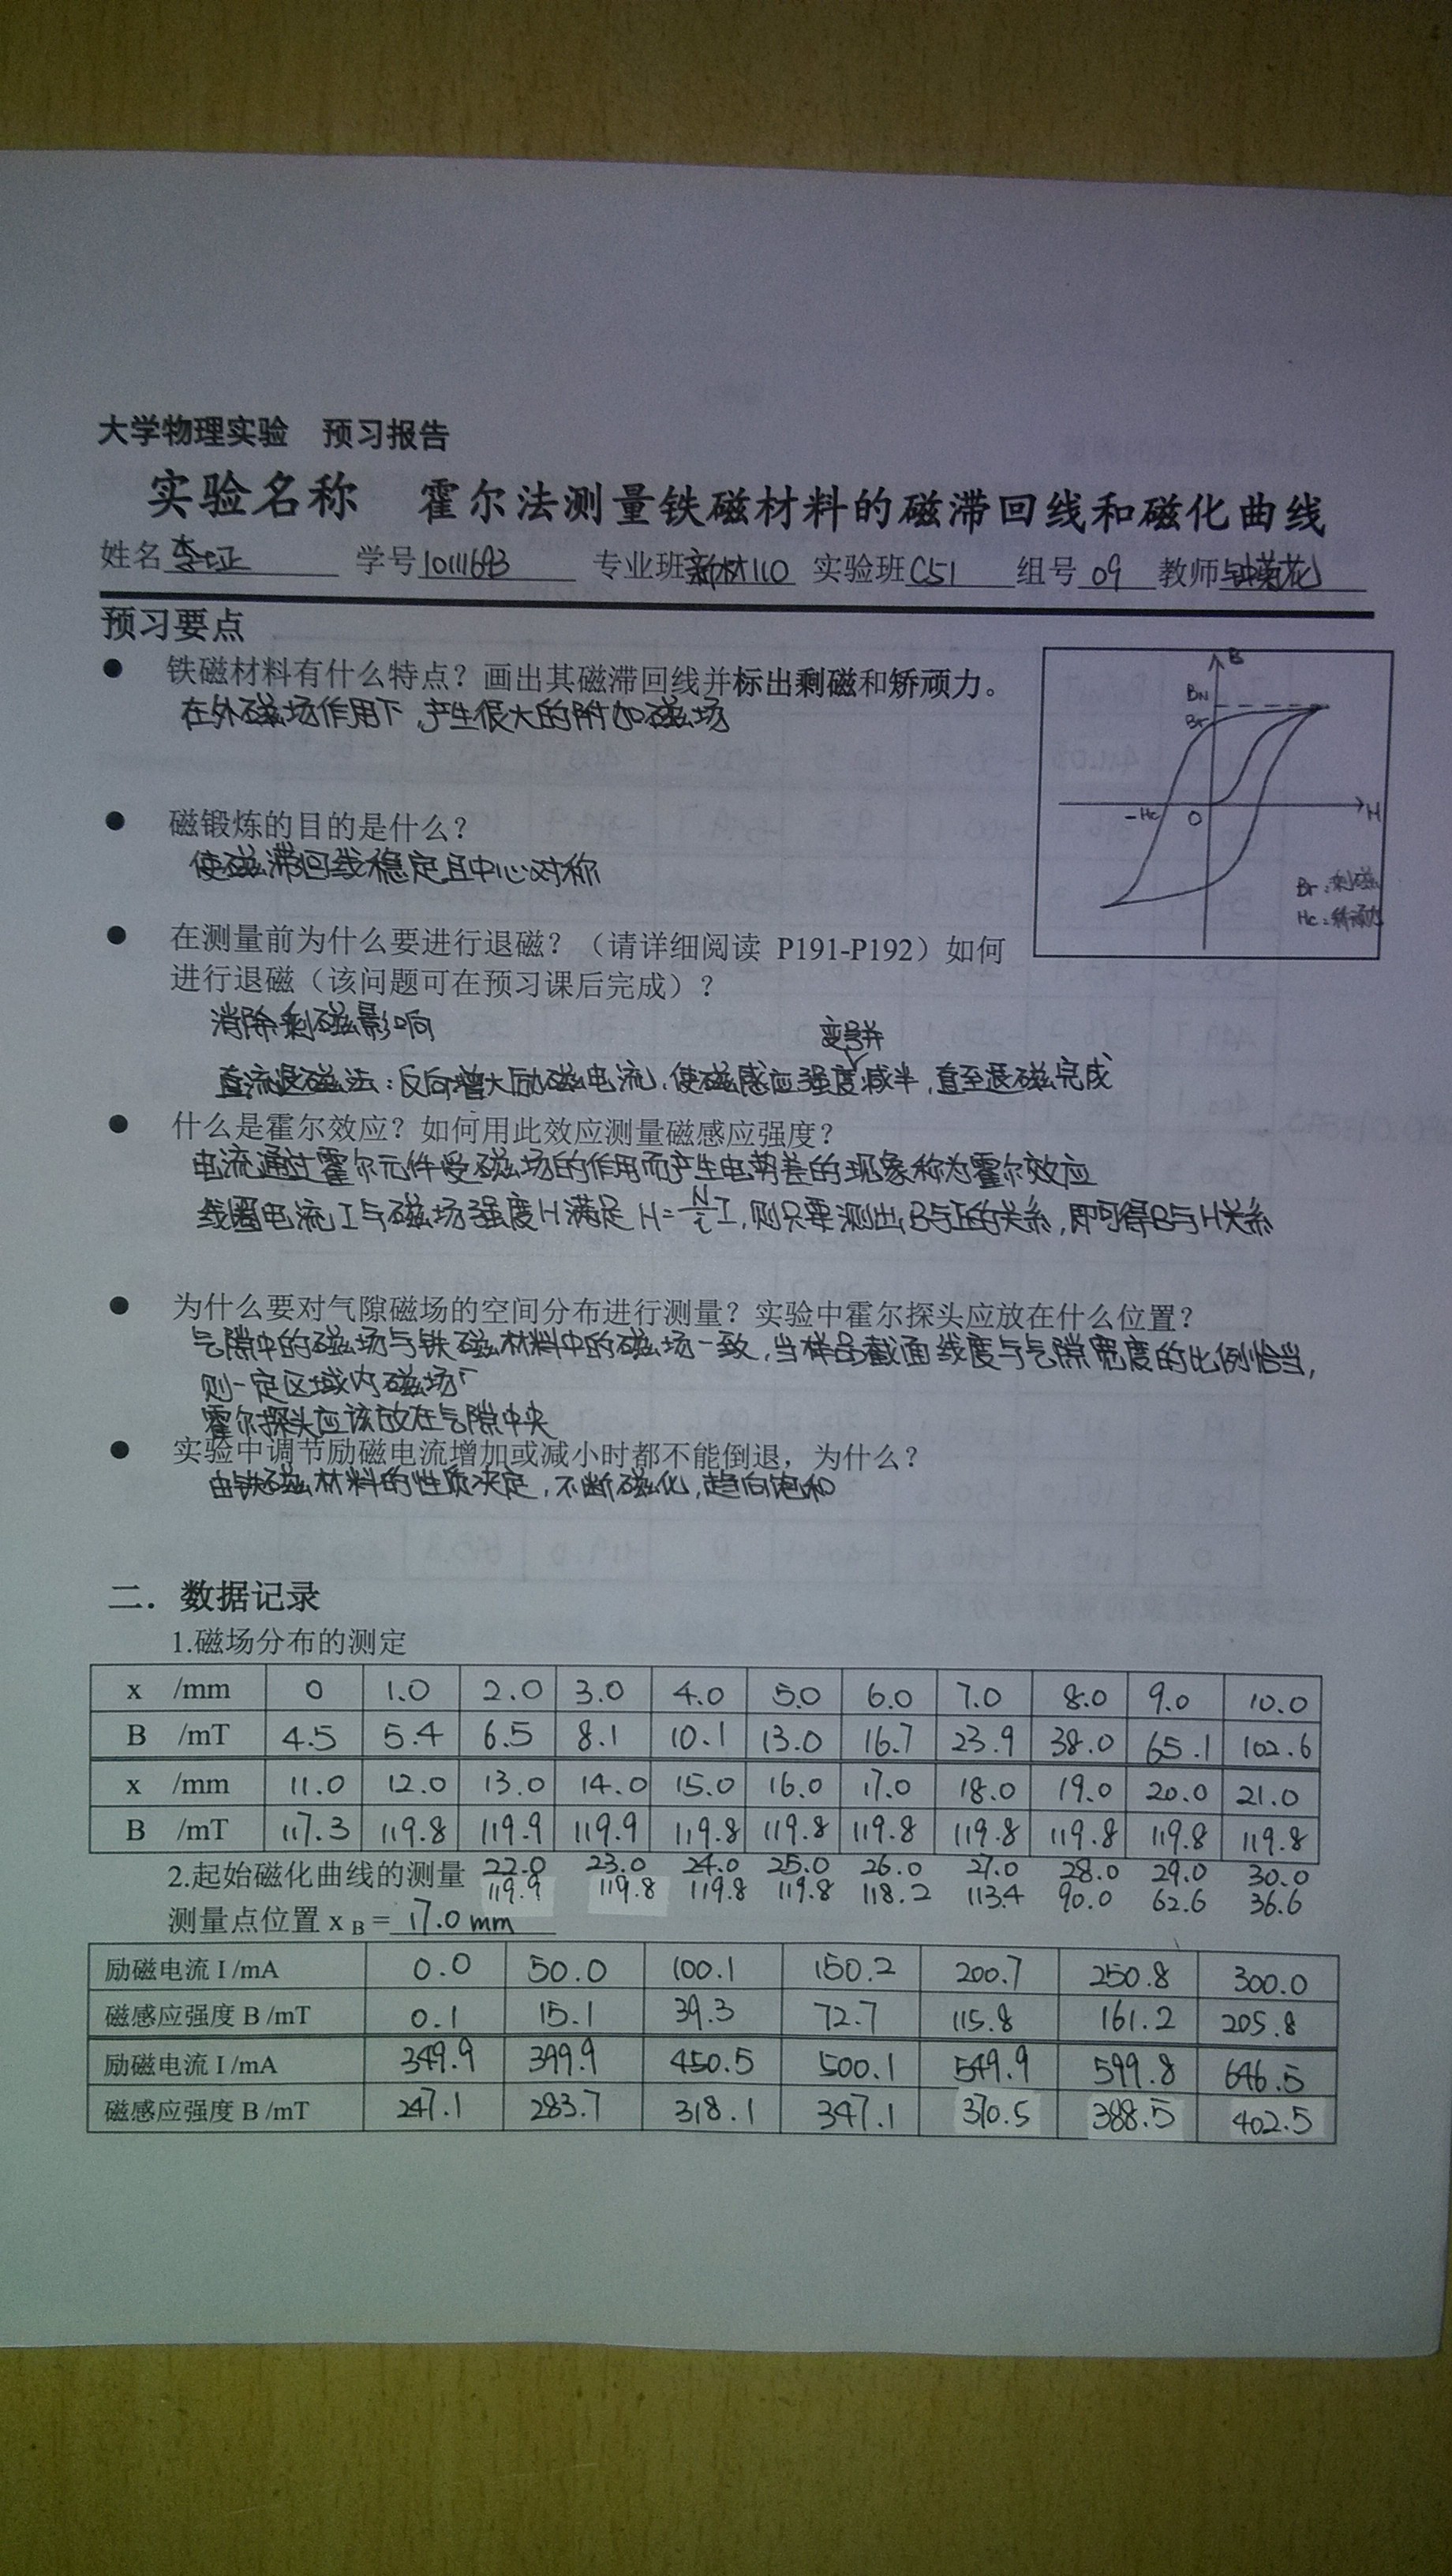 大学物理实验 预习报告
实验名称 霍尔法测量铁磁材料的磁滞回线和磁化曲线
姓名 学号 10111693 专业班 新材110 实验班 C51 组号 09 教师 钟菊花
预习要点
● 铁磁材料有什么特点？画出其磁滞回线并标出剩磁和矫顽力。
在外磁场作用下，产生很大的附加磁场
B
BN
Br
-Hc
O
H
Br：剩磁
Hc：矫顽力
● 磁锻炼的目的是什么？
使磁滞回线稳定且中心对称
● 在测量前为什么要进行退磁？（请详细阅读 P191-P192）如何
进行退磁（该问题可在预习课后完成）？
消除剩磁影响
变号并
直流退磁法：反向增大励磁电流，使磁感应强度减半，直至退磁完成
● 什么是霍尔效应？如何用此效应测量磁感应强度？
电流通过霍尔元件受磁场的作用而产生电势差的现象称为霍尔效应
线圈电流I与磁场强度H满足 H=N/l I，则只要测出B与I的关系，即可得B与H关系
● 为什么要对气隙磁场的空间分布进行测量？实验中霍尔探头应放在什么位置？
气隙中的磁场与铁磁材料中的磁场一致，当样品截面线度与气隙宽度的比例恰当，
则一定区域内磁场
霍尔探头应该放在气隙中央
● 实验中调节励磁电流增加或减小时都不能倒退，为什么？
由铁磁材料的性质决定，不断磁化，趋向饱和
二．数据记录
1.磁场分布的测定
x /mm 0 1.0 2.0 3.0 4.0 5.0 6.0 7.0 8.0 9.0 10.0
B /mT 4.5 5.4 6.5 8.1 10.1 13.0 16.7 23.9 38.0 65.1 102.6
x /mm 11.0 12.0 13.0 14.0 15.0 16.0 17.0 18.0 19.0 20.0 21.0
B /mT 117.3 119.8 119.9 119.9 119.8 119.8 119.8 119.8 119.8 119.8 119.8
2.起始磁化曲线的测量 22.0 23.0 24.0 25.0 26.0 27.0 28.0 29.0 30.0
119.9 119.8 119.8 119.8 118.2 113.4 90.0 62.6 36.6
测量点位置 x B = 17.0 mm
励磁电流 I /mA 0.0 50.0 100.1 150.2 200.7 250.8 300.0
磁感应强度 B /mT 0.1 15.1 39.3 72.7 115.8 161.2 205.8
励磁电流 I /mA 349.9 399.9 450.5 500.1 549.9 599.8 646.5
磁感应强度 B /mT 247.1 283.7 318.1 347.1 370.5 388.5 402.5